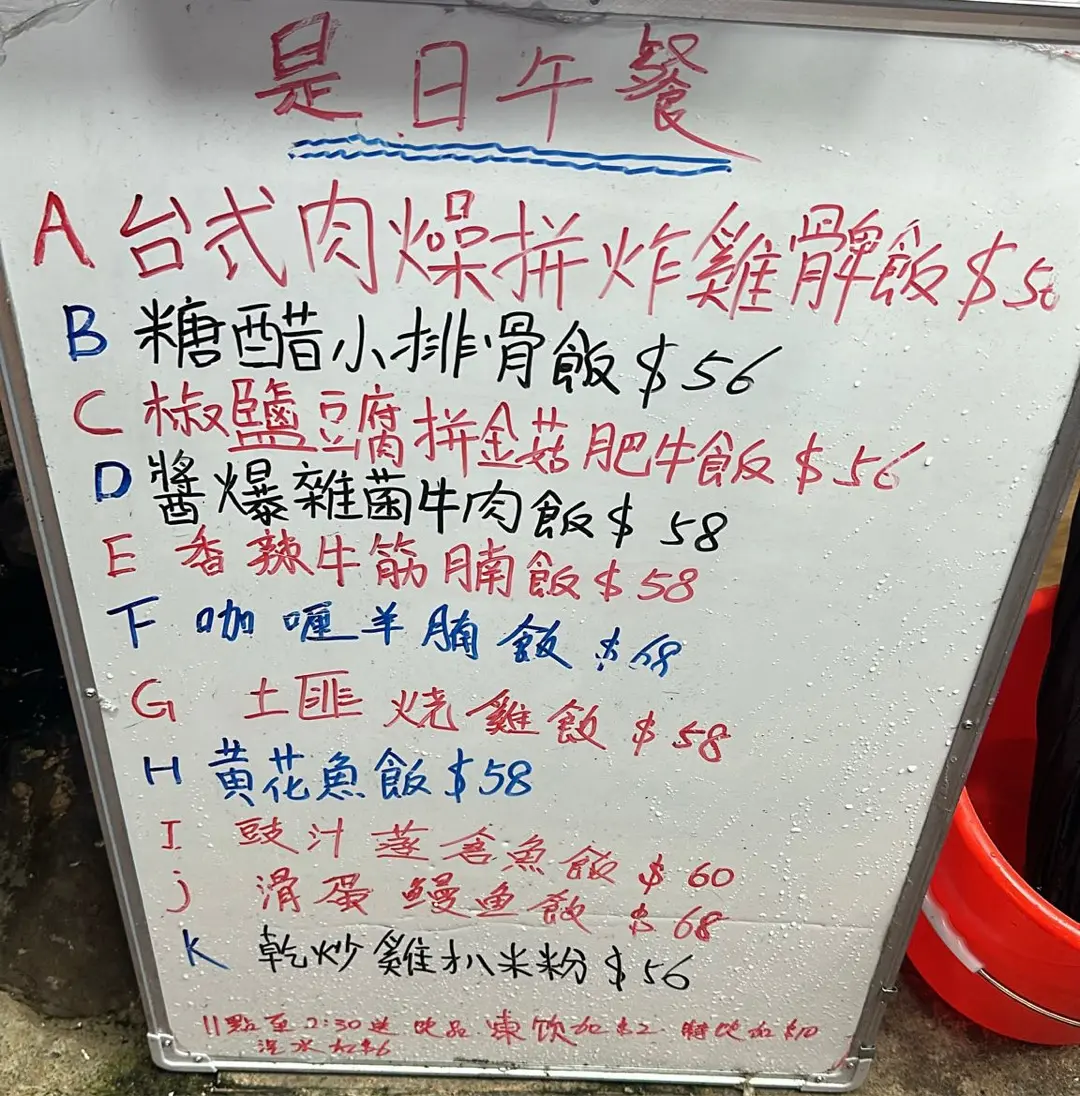 是日午餐
A 台式肉燥拼炸雞髀飯 $56
B 糖醋小排骨飯 $56
C 椒鹽豆腐拼金菇肥牛飯 $56
D 醬爆雜菌牛肉飯 $58
E 香辣牛筋腩飯 $58
F 咖喱羊腩飯 $68
G 土匪烧雞飯 $58
H 黄花魚飯 $58
I 豉汁蒸倉魚飯 $60
j 滑蛋鰻鱼飯 $68
K 乾炒雞扒米粉 $56
11點至2:30送飲品 凍饮加$2 特饮加$10
汽水加$6